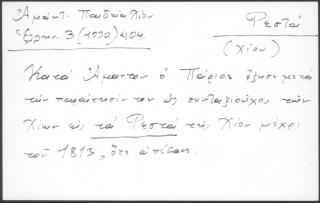 Ἀμάντ. Παιδεία Χίου
Ἑλλην. 3 (1930) 404.
Ρεστά
(Χίου)
Κατά Ἄμαντον ὁ Πάριος ἔζησε μετά
τήν παραίτησίν του ὡς συνταξιοῦχος τῶν
Χίων εἰς τά Ρεστά τῆς Χίου μέχρι
τοῦ 1813, ὅτε ἀπέθανε.